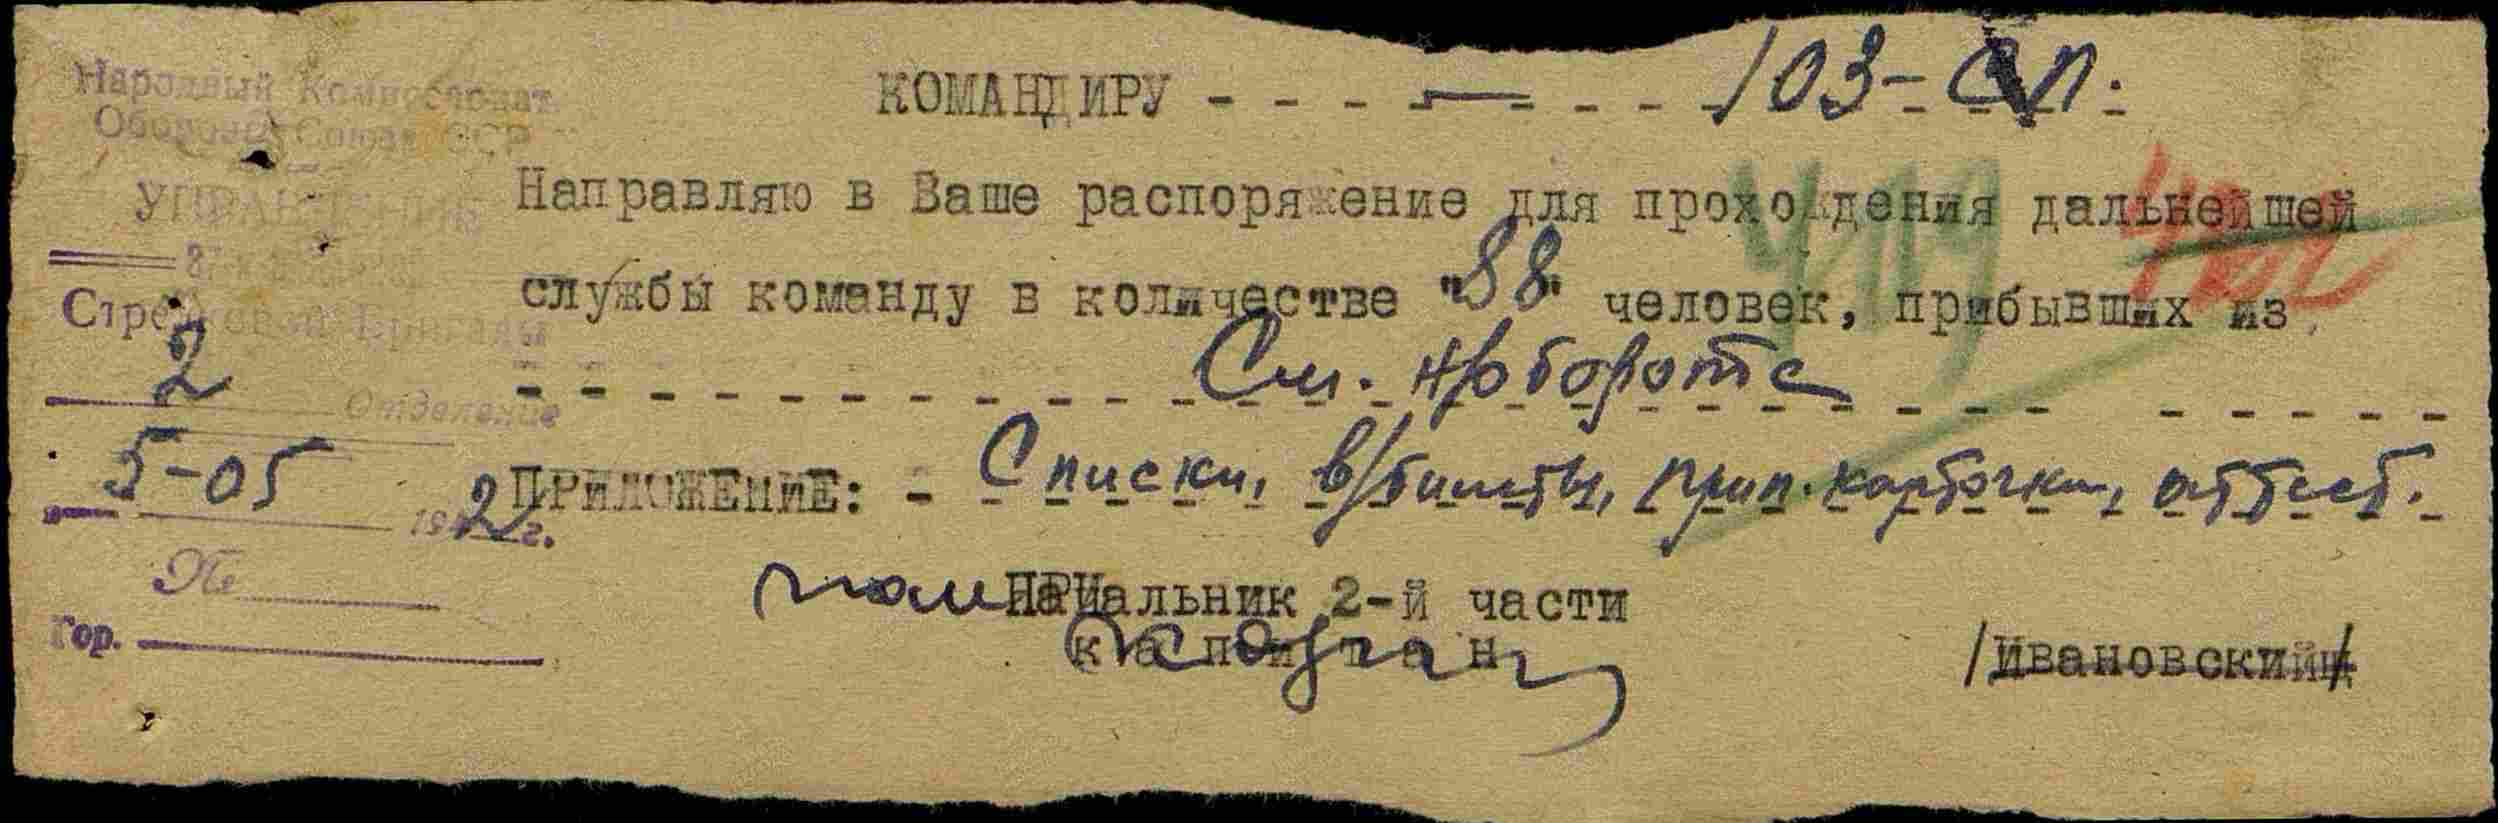 Народный Комиссариат
Обороны Союза ССР
УПРАВЛЕНИЕ
Стрелковой Бригады
2
Отделение
5-05 1942 г.
№
Гор.
КОМАНДИРУ 103-СП.
419
Направляю в Ваше распоряжение для прохождения дальнейшей
службы команду в количестве "88" человек, прибывших из
См. на обороте
ПРИЛОЖЕНИЕ: - Списки, в/билеты, прип. карточки, аттест.
пом Начальник 2-й части
капитан
/Ивановский/